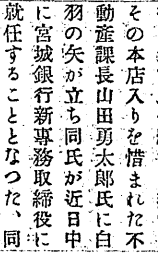 その本店入りを惜まれた不
動産課長山田勇太郎氏に白
羽の矢が立ち同氏が近日中
に宮城銀行新専務取締役に
就任することとなつた、同